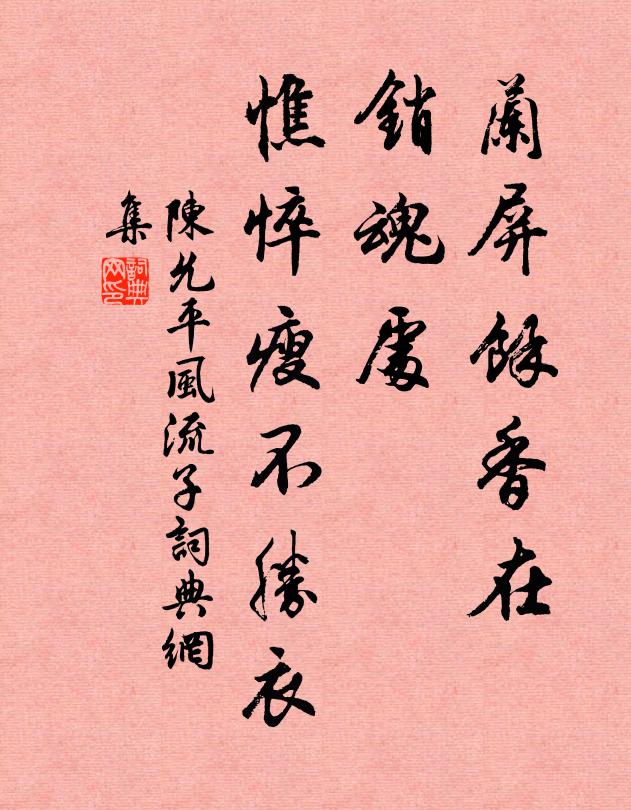 蘭屏餘香在
銷魂處
憔悴瘦不勝衣
陳允平風流子詞典網
集
詞典
网印